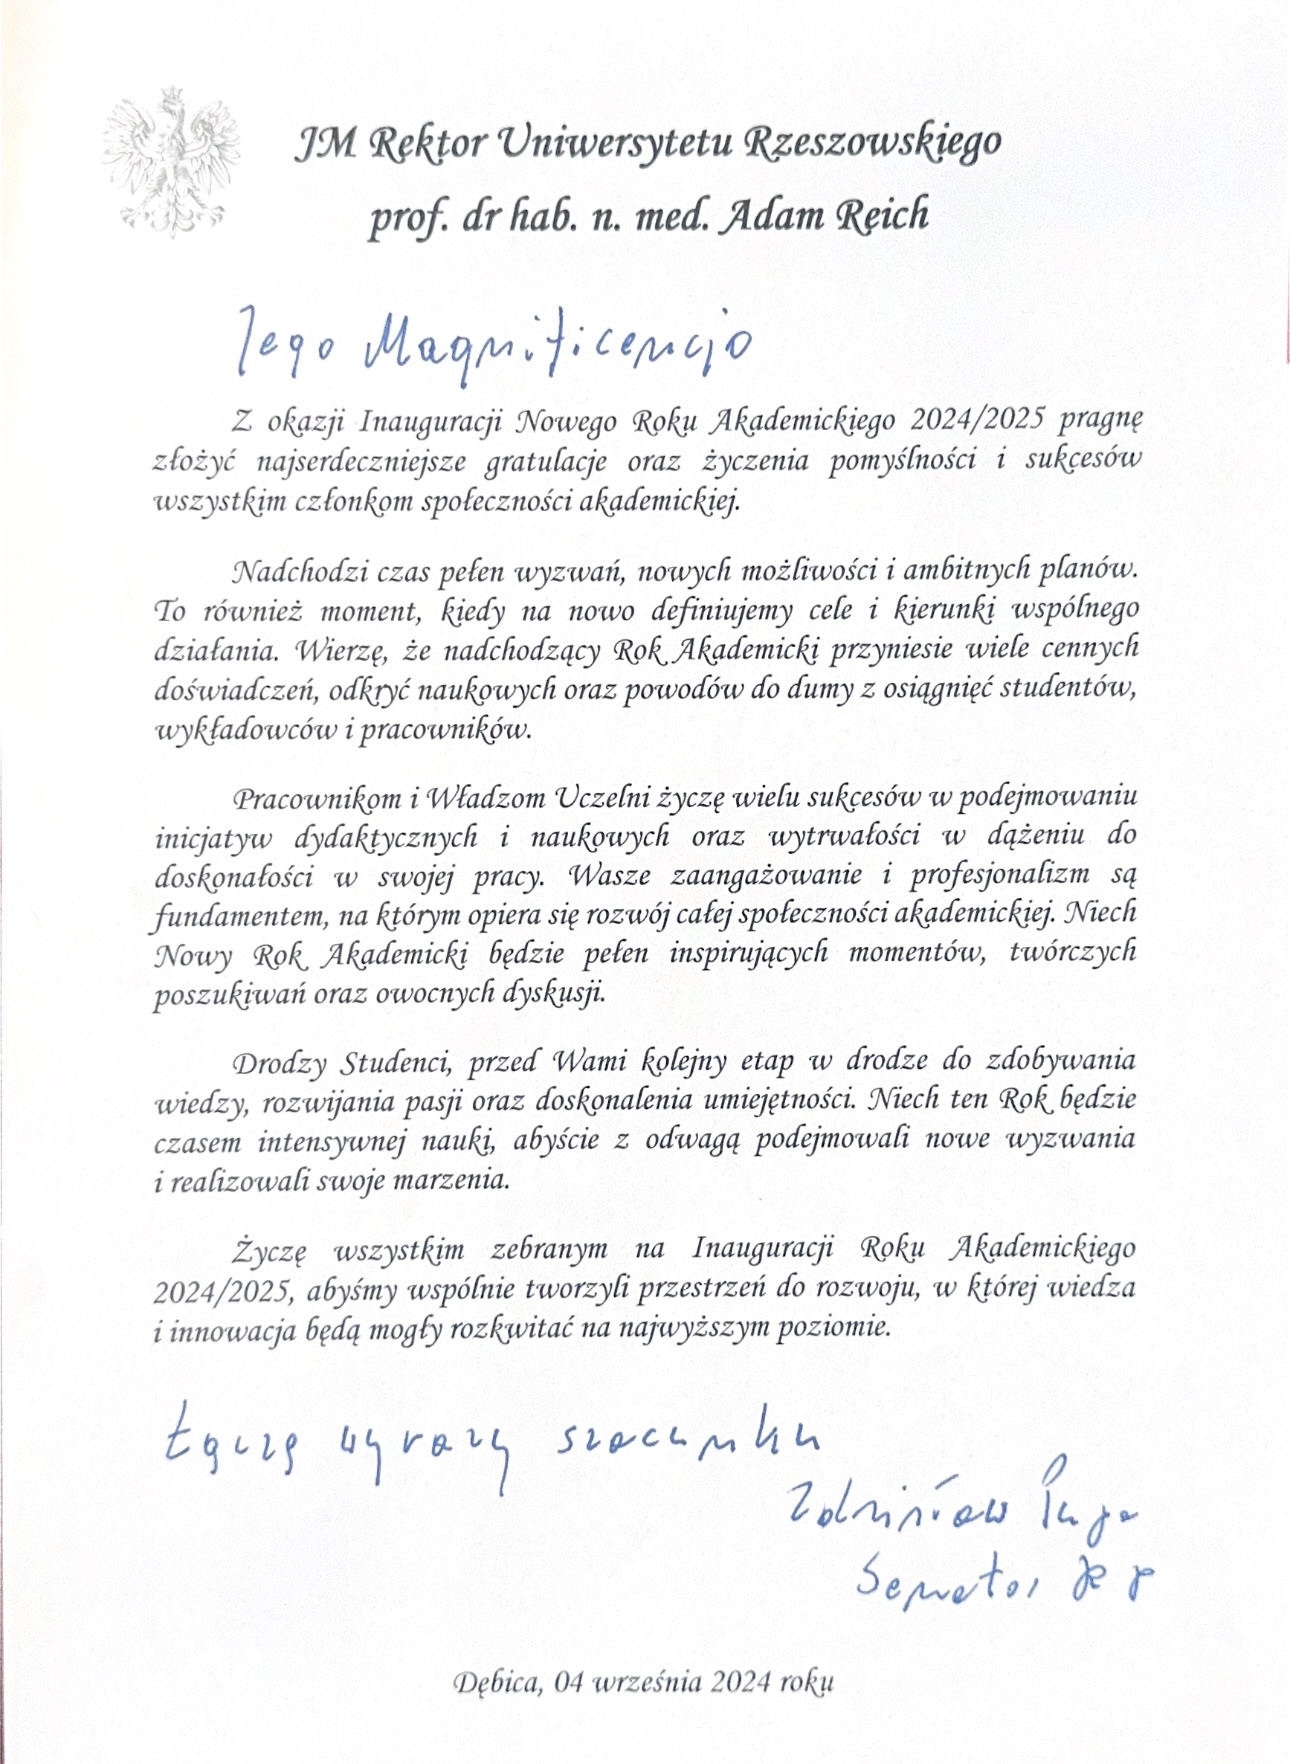 JM Rektor Uniwersytetu Rzeszowskiego
prof. dr hab. n. med. Adam Reich
Jego Magnificencjo
Z okazji Inauguracji Nowego Roku Akademickiego 2024/2025 pragnę
złożyć najserdeczniejsze gratulacje oraz życzenia pomyślności i sukcesów
wszystkim członkom społeczności akademickiej.
Nadchodzi czas pełen wyzwań, nowych możliwości i ambitnych planów.
To również moment, kiedy na nowo definiujemy cele i kierunki wspólnego
działania. Wierzę, że nadchodzący Rok Akademicki przyniesie wiele cennych
doświadczeń, odkryć naukowych oraz powodów do dumy z osiągnięć studentów,
wykładowców i pracowników.
Pracownikom i Władzom Uczelni życzę wielu sukcesów w podejmowaniu
inicjatyw dydaktycznych i naukowych oraz wytrwałości w dążeniu do
doskonałości w swojej pracy. Wasze zaangażowanie i profesjonalizm są
fundamentem, na którym opiera się rozwój całej społeczności akademickiej. Niech
Nowy Rok Akademicki będzie pełen inspirujących momentów, twórczych
poszukiwań oraz owocnych dyskusji.
Drodzy Studenci, przed Wami kolejny etap w drodze do zdobywania
wiedzy, rozwijania pasji oraz doskonalenia umiejętności. Niech ten Rok będzie
czasem intensywnej nauki, abyście z odwagą podejmowali nowe wyzwania
i realizowali swoje marzenia.
Życzę wszystkim zebranym na Inauguracji Roku Akademickiego
2024/2025, abyśmy wspólnie tworzyli przestrzeń do rozwoju, w której wiedza
i innowacja będą mogły rozkwitać na najwyższym poziomie.
Łączę wyrazy szacunku
Zdzisław Pupa
Senator RP
Dębica, 04 września 2024 roku